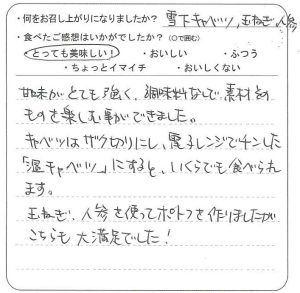 ・何をお召し上がりになりましたか？ 雪下キャベツ，玉ねぎ，人参
・食べたご感想はいかがでしたか？（○で囲む）
・とっても美味しい！ ・おいしい ・ふつう
・ちょっとイマイチ ・おいしくない
甘味がとても強く、調味料なしで、素材その
ものを楽しむ事ができました。
キャベツはザク切りにし、電子レンジでチンした
「温キャベツ」にすると、いくらでも食べられ
ます。
玉ねぎ、人参を使ってポトフを作りましたが
こちらも大満足でした！